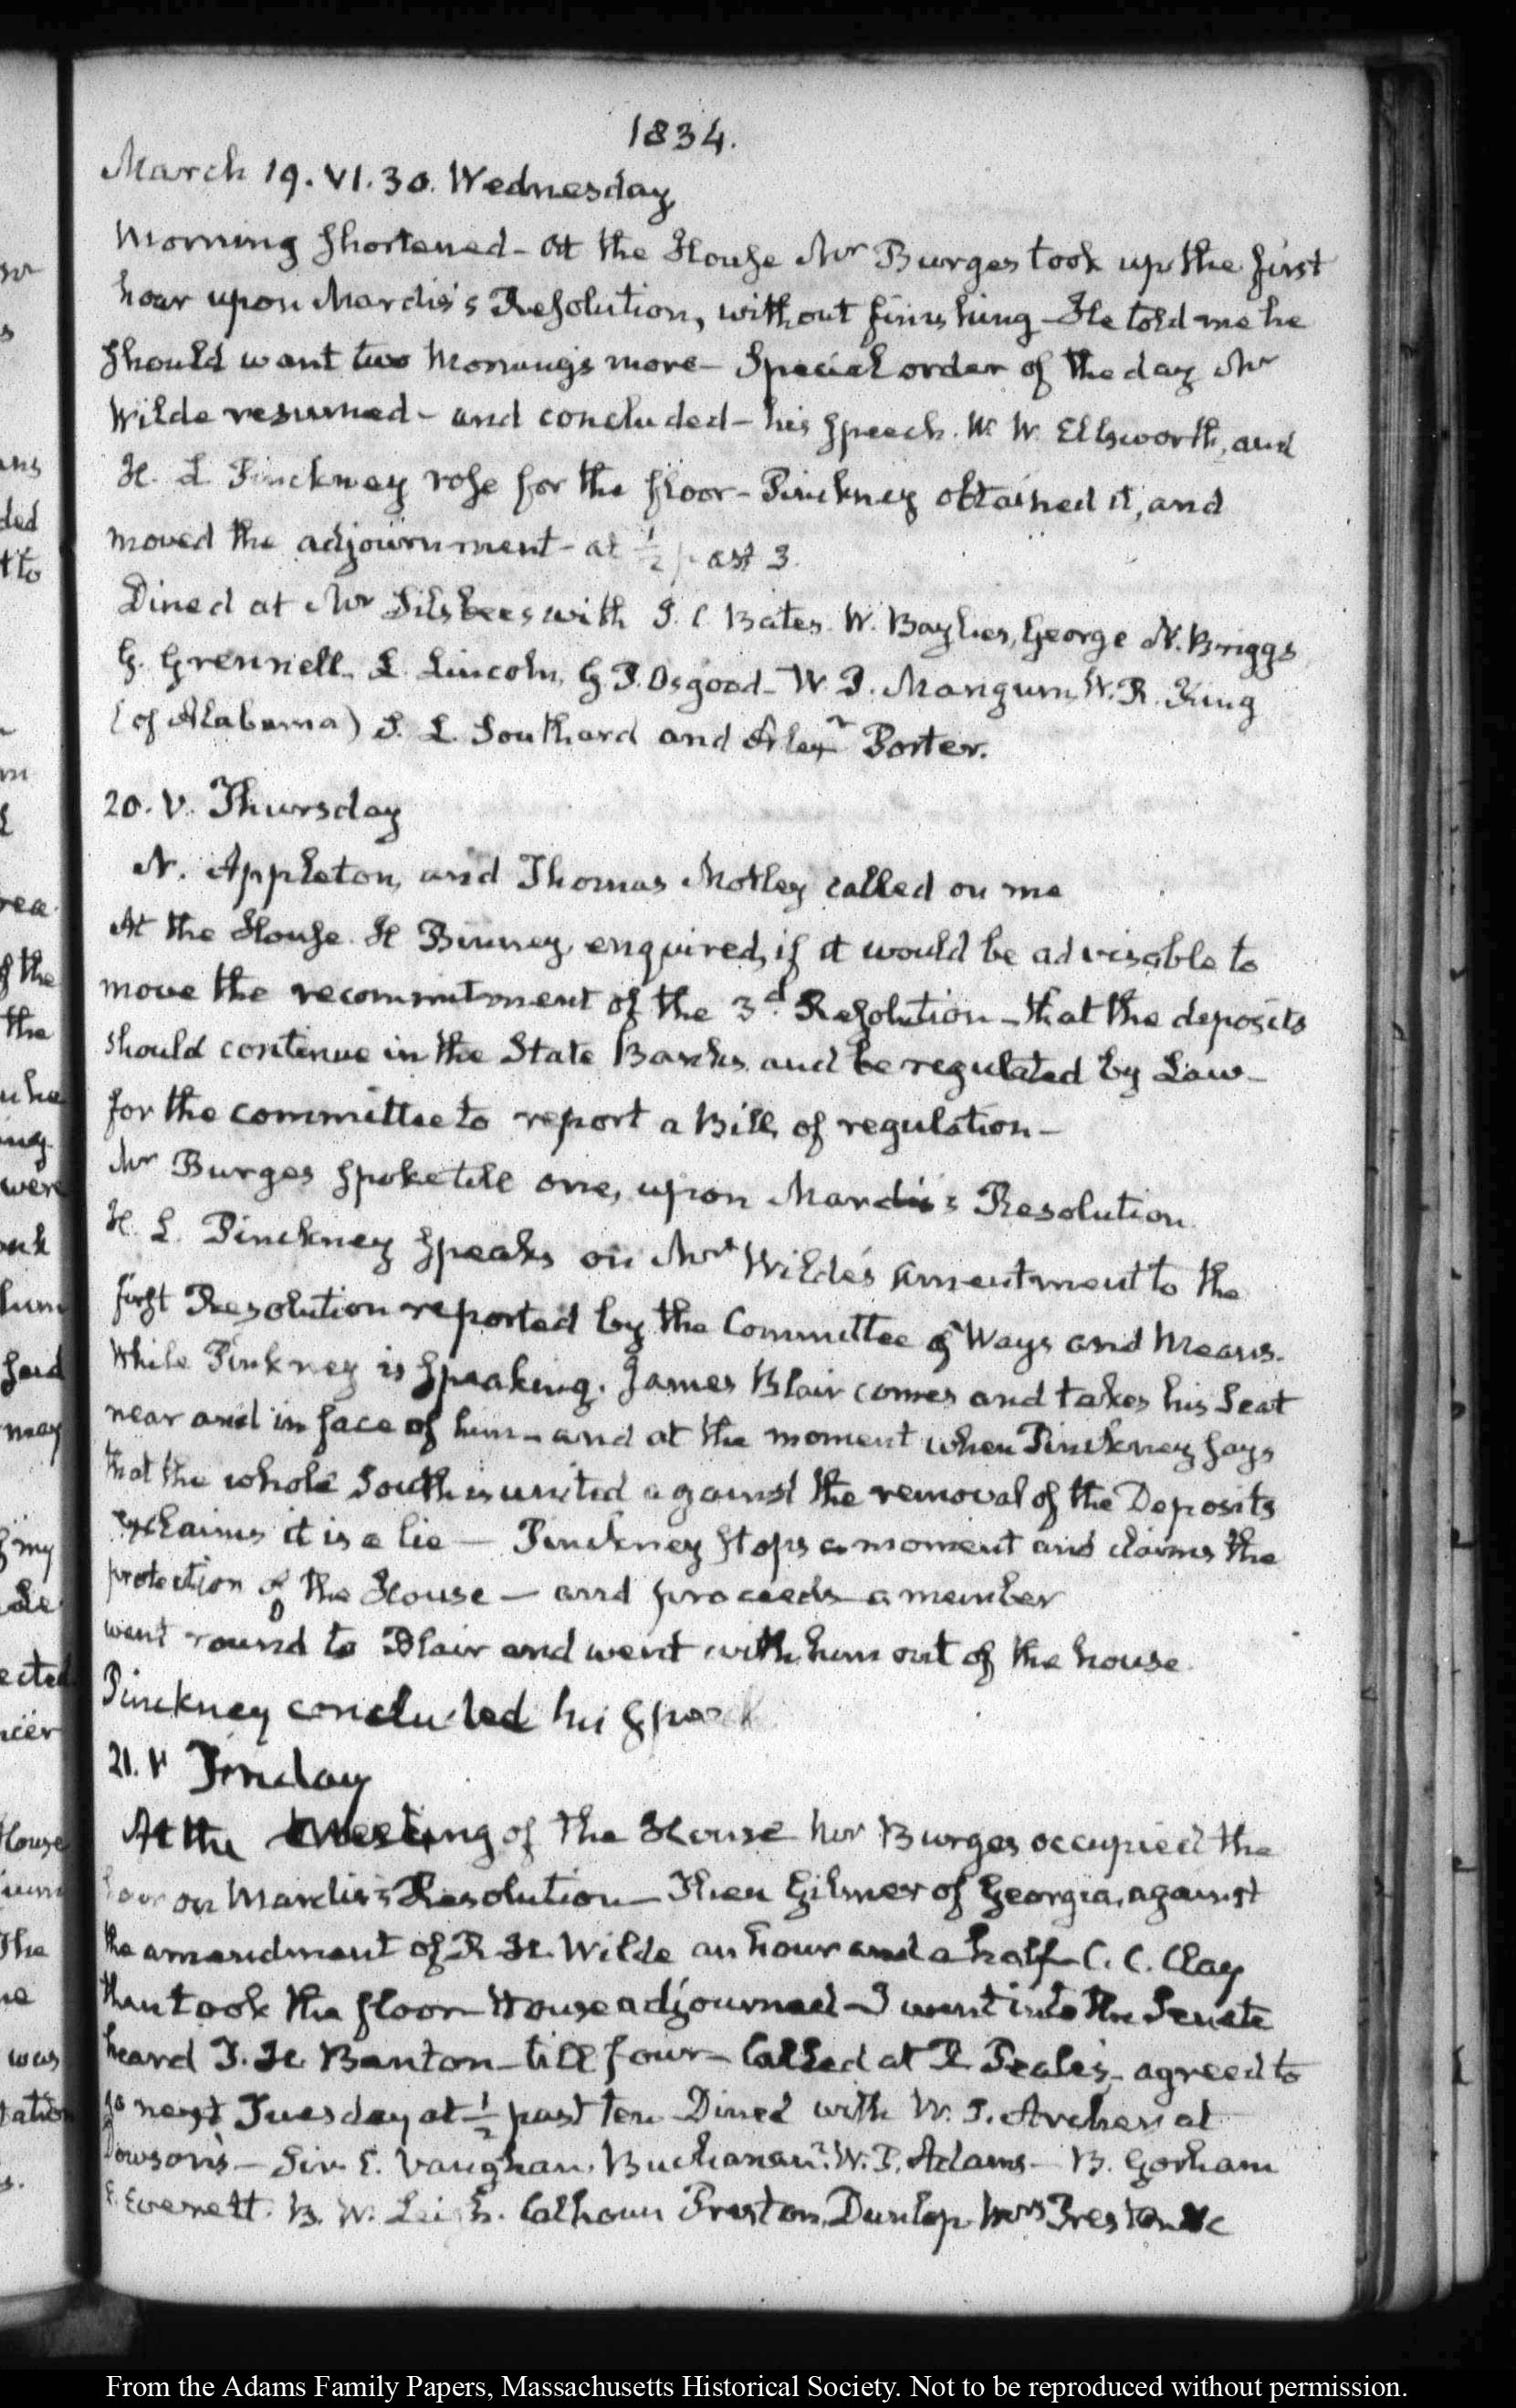 1834.
March 19. VI. 30. Wednesday
Morning shortened - At the House Mr Burges took up the first
hour upon Mardis's Resolution, without finishing - He told me he
should want two Mornings more - Special order of the day Mr
Wilde resumed - and concluded - his speech. W. W. Ellsworth, and
H. L. Pinckney rose for the floor - Pinckney obtained it, and
moved the adjournment - at ½ past 3.
Dined at Mr Silsbees with I. C. Bates. W. Baylies, George N. Briggs
G. Grennell. L. Lincoln, G. P. Osgood - W. P. Mangum, W. R. King
(of Alabama) S. L. Southard and Alexr Porter.
20. V. Thursday
N. Appleton, and Thomas Motley called on me
At the House. H Binney, enquired, if it would be advisable to
move the recommitment of the 3d. Resolution - that the deposits
should continue in the State Banks, and be regulated by Law -
for the committee to report a Bill, of regulation -
Mr Burges spoke till one, upon Mardis's Resolution.
H. L. Pinckney speaks on Mr Wilde's amentment to the
first Resolution reported by the Committee of Ways and Means.
While Pinkney is speaking. James Blair comes and takes his Seat
near and in face of him - and at the moment when Pinckney says
that the whole South is united against the removal of the Deposits
exclaims it is a lie - Pinckney stops a moment and claims the
protection of the House - and proceeds - a member
went round to Blair and went with him out of the house.
Pinckney concluded his speech
21. V Friday
At the Meeting of the House Mr Burges occupied the
hour on Mardis's Resolution - Then Gilmer of Georgia, against
the amendment of R. H. Wilde an hour and a half - C. C. Clay
then took the floor - House adjourned - I went into the Senate
heard T. H. Benton - till four - Called at R Peale's - agreed to
go next Tuesday at ½ past ten Dined with W. S. Archer at
Dowson's - Sir C. Vaughan, Buchanan. W. P. Adams - B. Gorham
E. Everett. B. W. Leigh. Calhoun Preston, Dunlop Mrs Preston &c
From the Adams Family Papers, Massachusetts Historical Society. Not to be reproduced without permission.